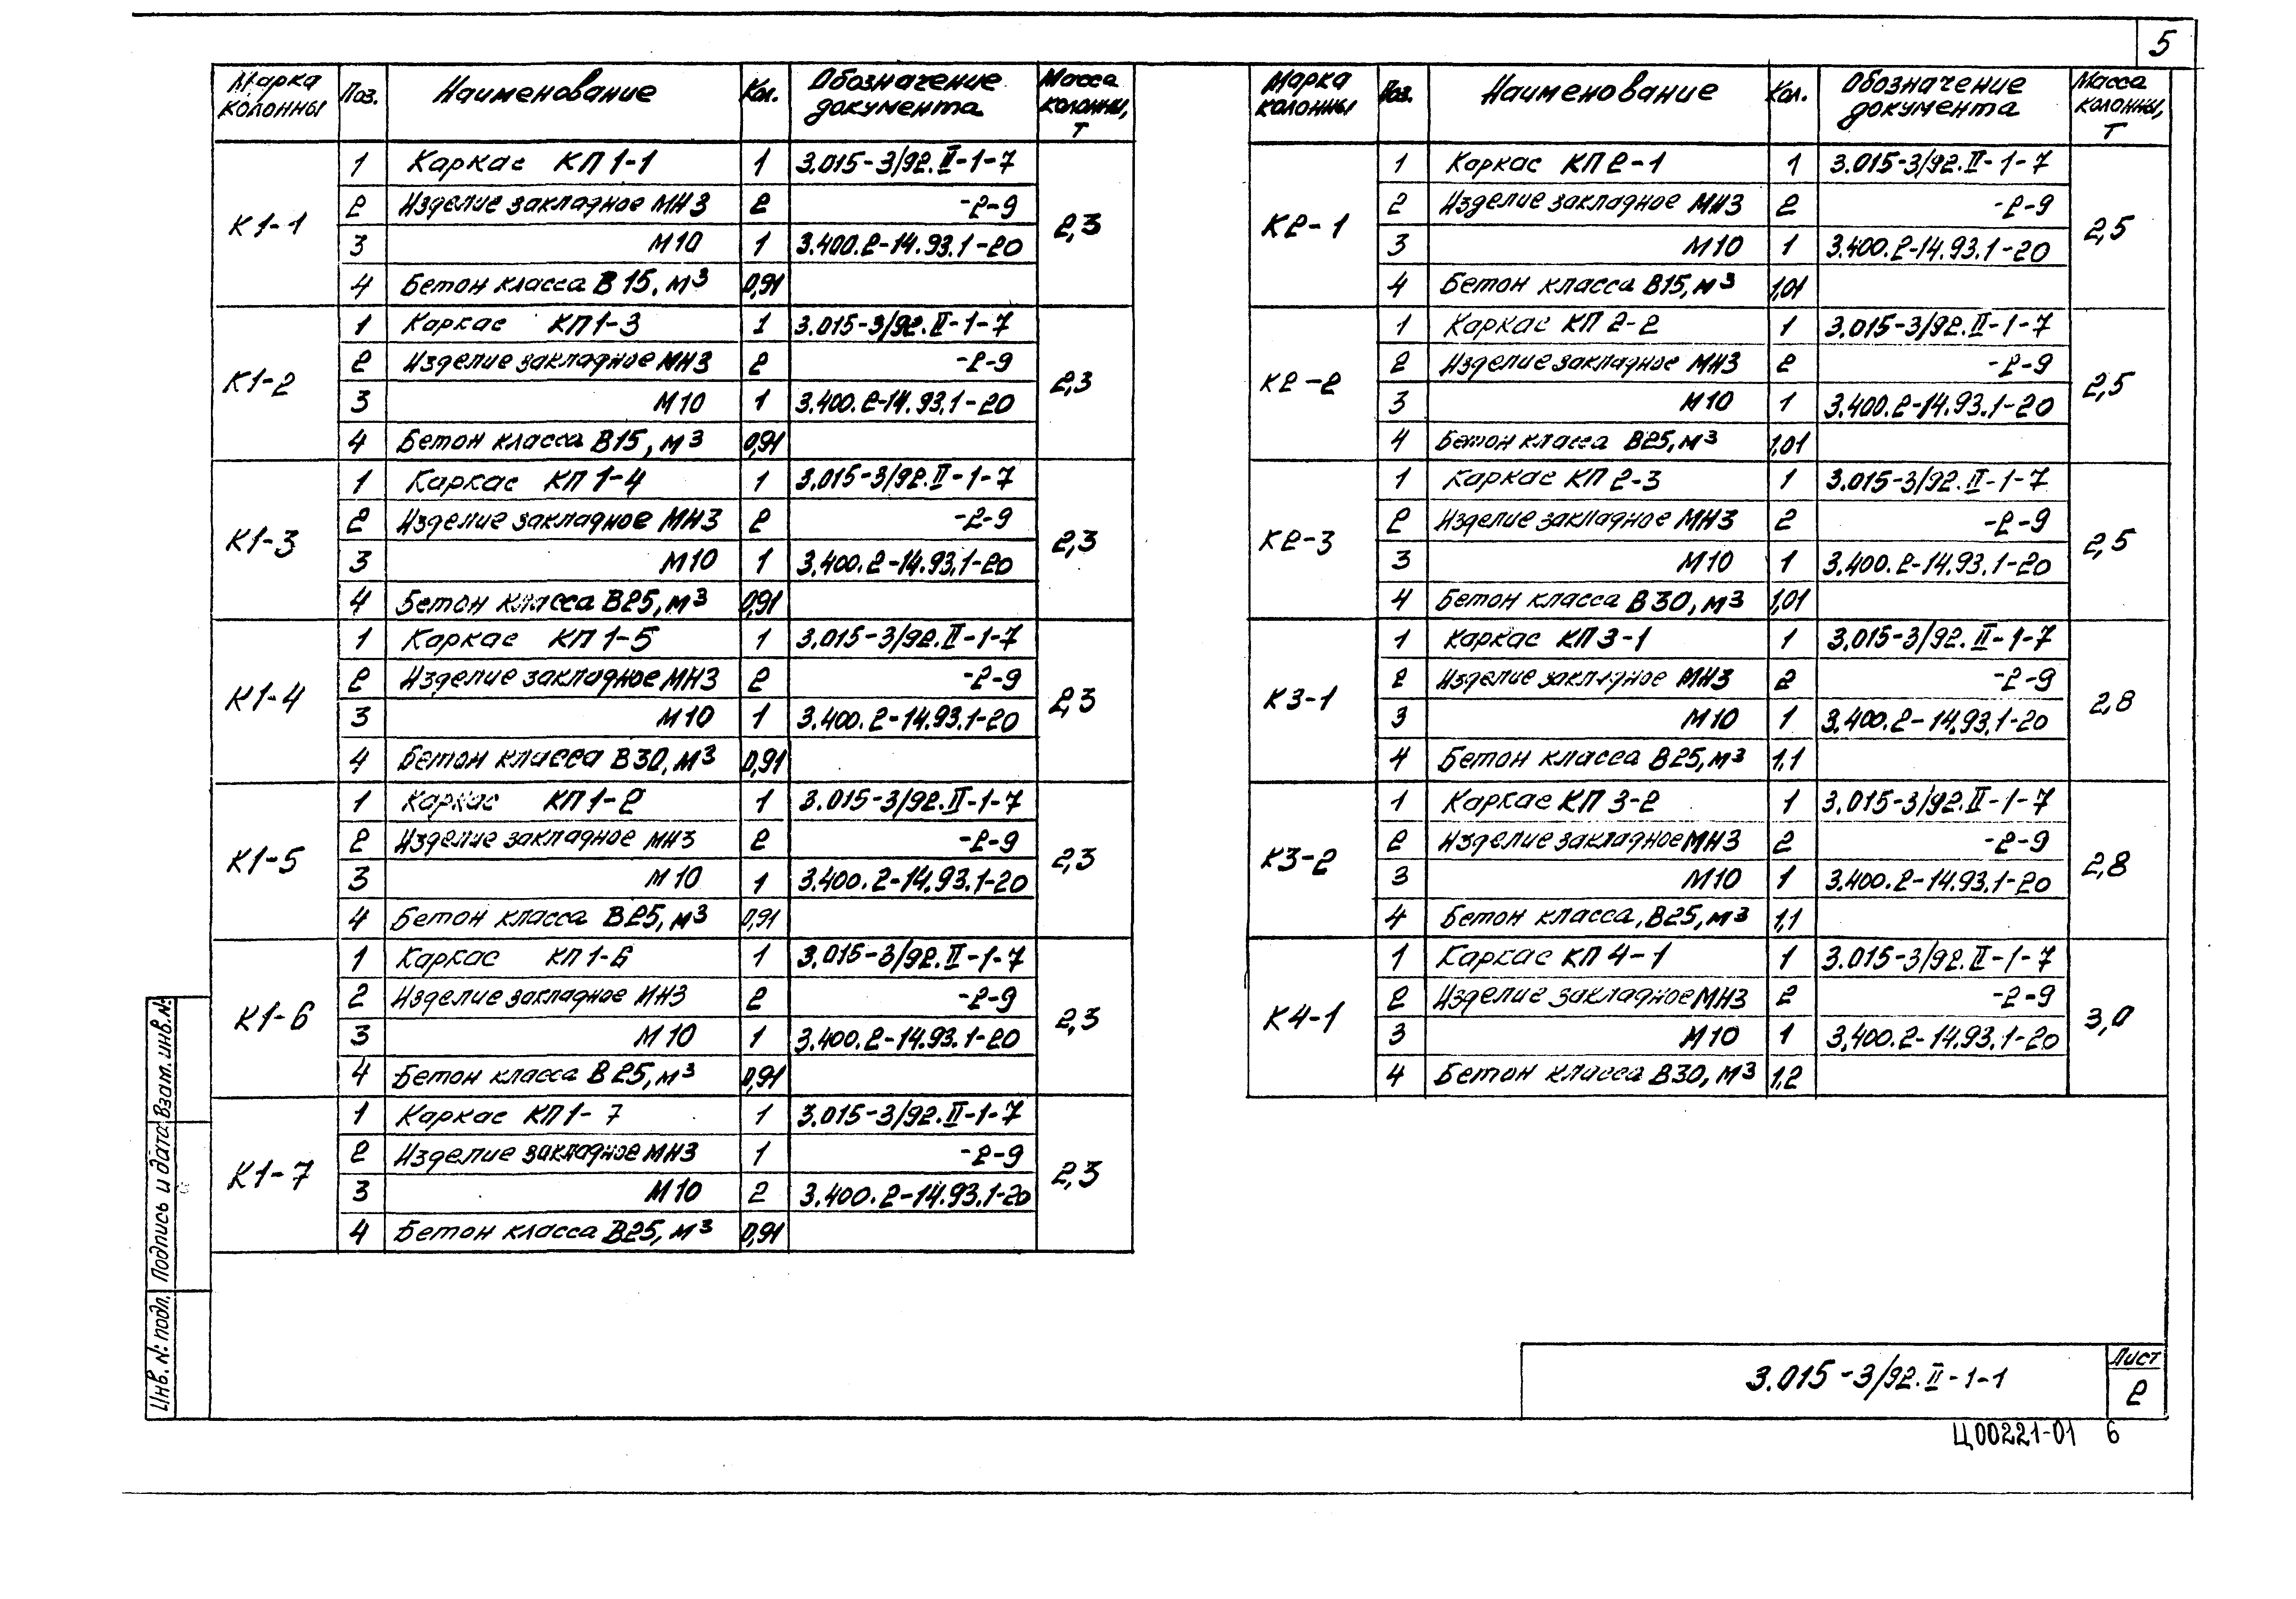 5
Марка колонны Поз. Наименование Кол. Обозначение документа Масса колонны, т
К1-1
1 Каркас КП1-1 1 3.015-3/92.II-1-7
2 Изделие закладное МН3 2 -2-9
3 М10 1 3.400.2-14.93.1-20
4 Бетон класса В15, м³ 0,91
2,3
К1-2
1 Каркас КП1-3 1 3.015-3/92.II-1-7
2 Изделие закладное МН3 2 -2-9
3 М10 1 3.400.2-14.93.1-20
4 Бетон класса В15, м³ 0,91
2,3
К1-3
1 Каркас КП1-4 1 3.015-3/92.II-1-7
2 Изделие закладное МН3 2 -2-9
3 М10 1 3.400.2-14.93.1-20
4 Бетон класса В25, м³ 0,91
2,3
К1-4
1 Каркас КП1-5 1 3.015-3/92.II-1-7
2 Изделие закладное МН3 2 -2-9
3 М10 1 3.400.2-14.93.1-20
4 Бетон класса В30, м³ 0,91
2,3
К1-5
1 Каркас КП1-2 1 3.015-3/92.II-1-7
2 Изделие закладное МН3 2 -2-9
3 М10 1 3.400.2-14.93.1-20
4 Бетон класса В25, м³ 0,91
2,3
К1-6
1 Каркас КП1-6 1 3.015-3/92.II-1-7
2 Изделие закладное МН3 2 -2-9
3 М10 1 3.400.2-14.93.1-20
4 Бетон класса В25, м³ 0,91
2,3
К1-7
1 Каркас КП1-7 1 3.015-3/92.II-1-7
2 Изделие закладное МН3 1 -2-9
3 М10 2 3.400.2-14.93.1-20
4 Бетон класса В25, м³ 0,91
2,3
Марка колонны Поз. Наименование Кол. Обозначение документа Масса колонны, т
К2-1
1 Каркас КП2-1 1 3.015-3/92.II-1-7
2 Изделие закладное МН3 2 -2-9
3 М10 1 3.400.2-14.93.1-20
4 Бетон класса В15, м³ 1,01
2,5
К2-2
1 Каркас КП2-2 1 3.015-3/92.II-1-7
2 Изделие закладное МН3 2 -2-9
3 М10 1 3.400.2-14.93.1-20
4 Бетон класса В25, м³ 1,01
2,5
К2-3
1 Каркас КП2-3 1 3.015-3/92.II-1-7
2 Изделие закладное МН3 2 -2-9
3 М10 1 3.400.2-14.93.1-20
4 Бетон класса В30, м³ 1,01
2,5
К3-1
1 Каркас КП3-1 1 3.015-3/92.II-1-7
2 Изделие закладное МН3 2 -2-9
3 М10 1 3.400.2-14.93.1-20
4 Бетон класса В25, м³ 1,1
2,8
К3-2
1 Каркас КП3-2 1 3.015-3/92.II-1-7
2 Изделие закладное МН3 2 -2-9
3 М10 1 3.400.2-14.93.1-20
4 Бетон класса, В25, м³ 1,1
2,8
К4-1
1 Каркас КП4-1 1 3.015-3/92.II-1-7
2 Изделие закладное МН3 2 -2-9
3 М10 1 3.400.2-14.93.1-20
4 Бетон класса В30, м³ 1,2
3,0
Инв. № подл. Подпись и дата Взам. инв. №
3.015-3/92.II-1-1
Лист
2
Ц00221-01 6